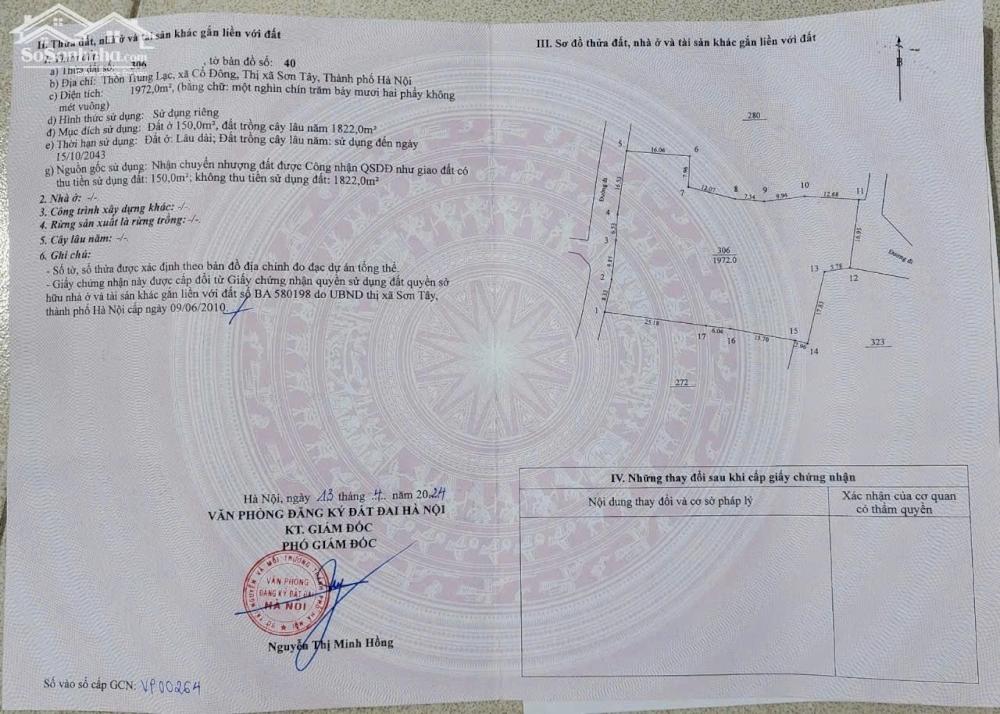 SoSanNha.com
II. Thửa đất, nhà ở và tài sản khác gắn liền với đất
a) Thửa đất số: 306, tờ bản đồ số: 40
b) Địa chỉ: Thôn Trung Lạc, xã Cổ Đông, Thị xã Sơn Tây, Thành phố Hà Nội
c) Diện tích: 1972,0m², (bằng chữ: một nghìn chín trăm bảy mươi hai phẩy không
mét vuông)
d) Hình thức sử dụng: Sử dụng riêng
đ) Mục đích sử dụng: Đất ở 150,0m², đất trồng cây lâu năm 1822,0m²
e) Thời hạn sử dụng: Đất ở: Lâu dài; Đất trồng cây lâu năm: sử dụng đến ngày
15/10/2043
g) Nguồn gốc sử dụng: Nhận chuyển nhượng đất được Công nhận QSDĐ như giao đất có
thu tiền sử dụng đất: 150,0m²; không thu tiền sử dụng đất: 1822,0m²
2. Nhà ở: -/-
3. Công trình xây dựng khác: -/-
4. Rừng sản xuất là rừng trồng: -/-
5. Cây lâu năm: -/-
6. Ghi chú:
- Số tờ, số thửa được xác định theo bản đồ địa chính đo đạc dự án tổng thể.
- Giấy chứng nhận này được cấp đổi từ Giấy chứng nhận quyền sử dụng đất quyền sở
hữu nhà ở và tài sản khác gắn liền với đất số BA 580198 do UBND thị xã Sơn Tây,
thành phố Hà Nội cấp ngày 09/06/2010
Hà Nội, ngày 13 tháng 4 năm 2024
VĂN PHÒNG ĐĂNG KÝ ĐẤT ĐAI HÀ NỘI
KT. GIÁM ĐỐC
PHÓ GIÁM ĐỐC
VĂN PHÒNG
ĐĂNG KÝ ĐẤT ĐAI
HÀ NỘI
Nguyễn Thị Minh Hồng
Số vào sổ cấp GCN: VP00264
III. Sơ đồ thửa đất, nhà ở và tài sản khác gắn liền với đất
B
280
5
16.06
6
7
12.07
8
7.34
9
9.96
10
12.68
11
Đường đi
16.52
4
6.53
3
2
8.52
1
306
1972.0
16.95
Đường đi
13
5.78
12
17.83
25.18
17
6.04
16
13.70
15
2.96
14
323
272
IV. Những thay đổi sau khi cấp giấy chứng nhận
Nội dung thay đổi và cơ sở pháp lý
Xác nhận của cơ quan
có thẩm quyền